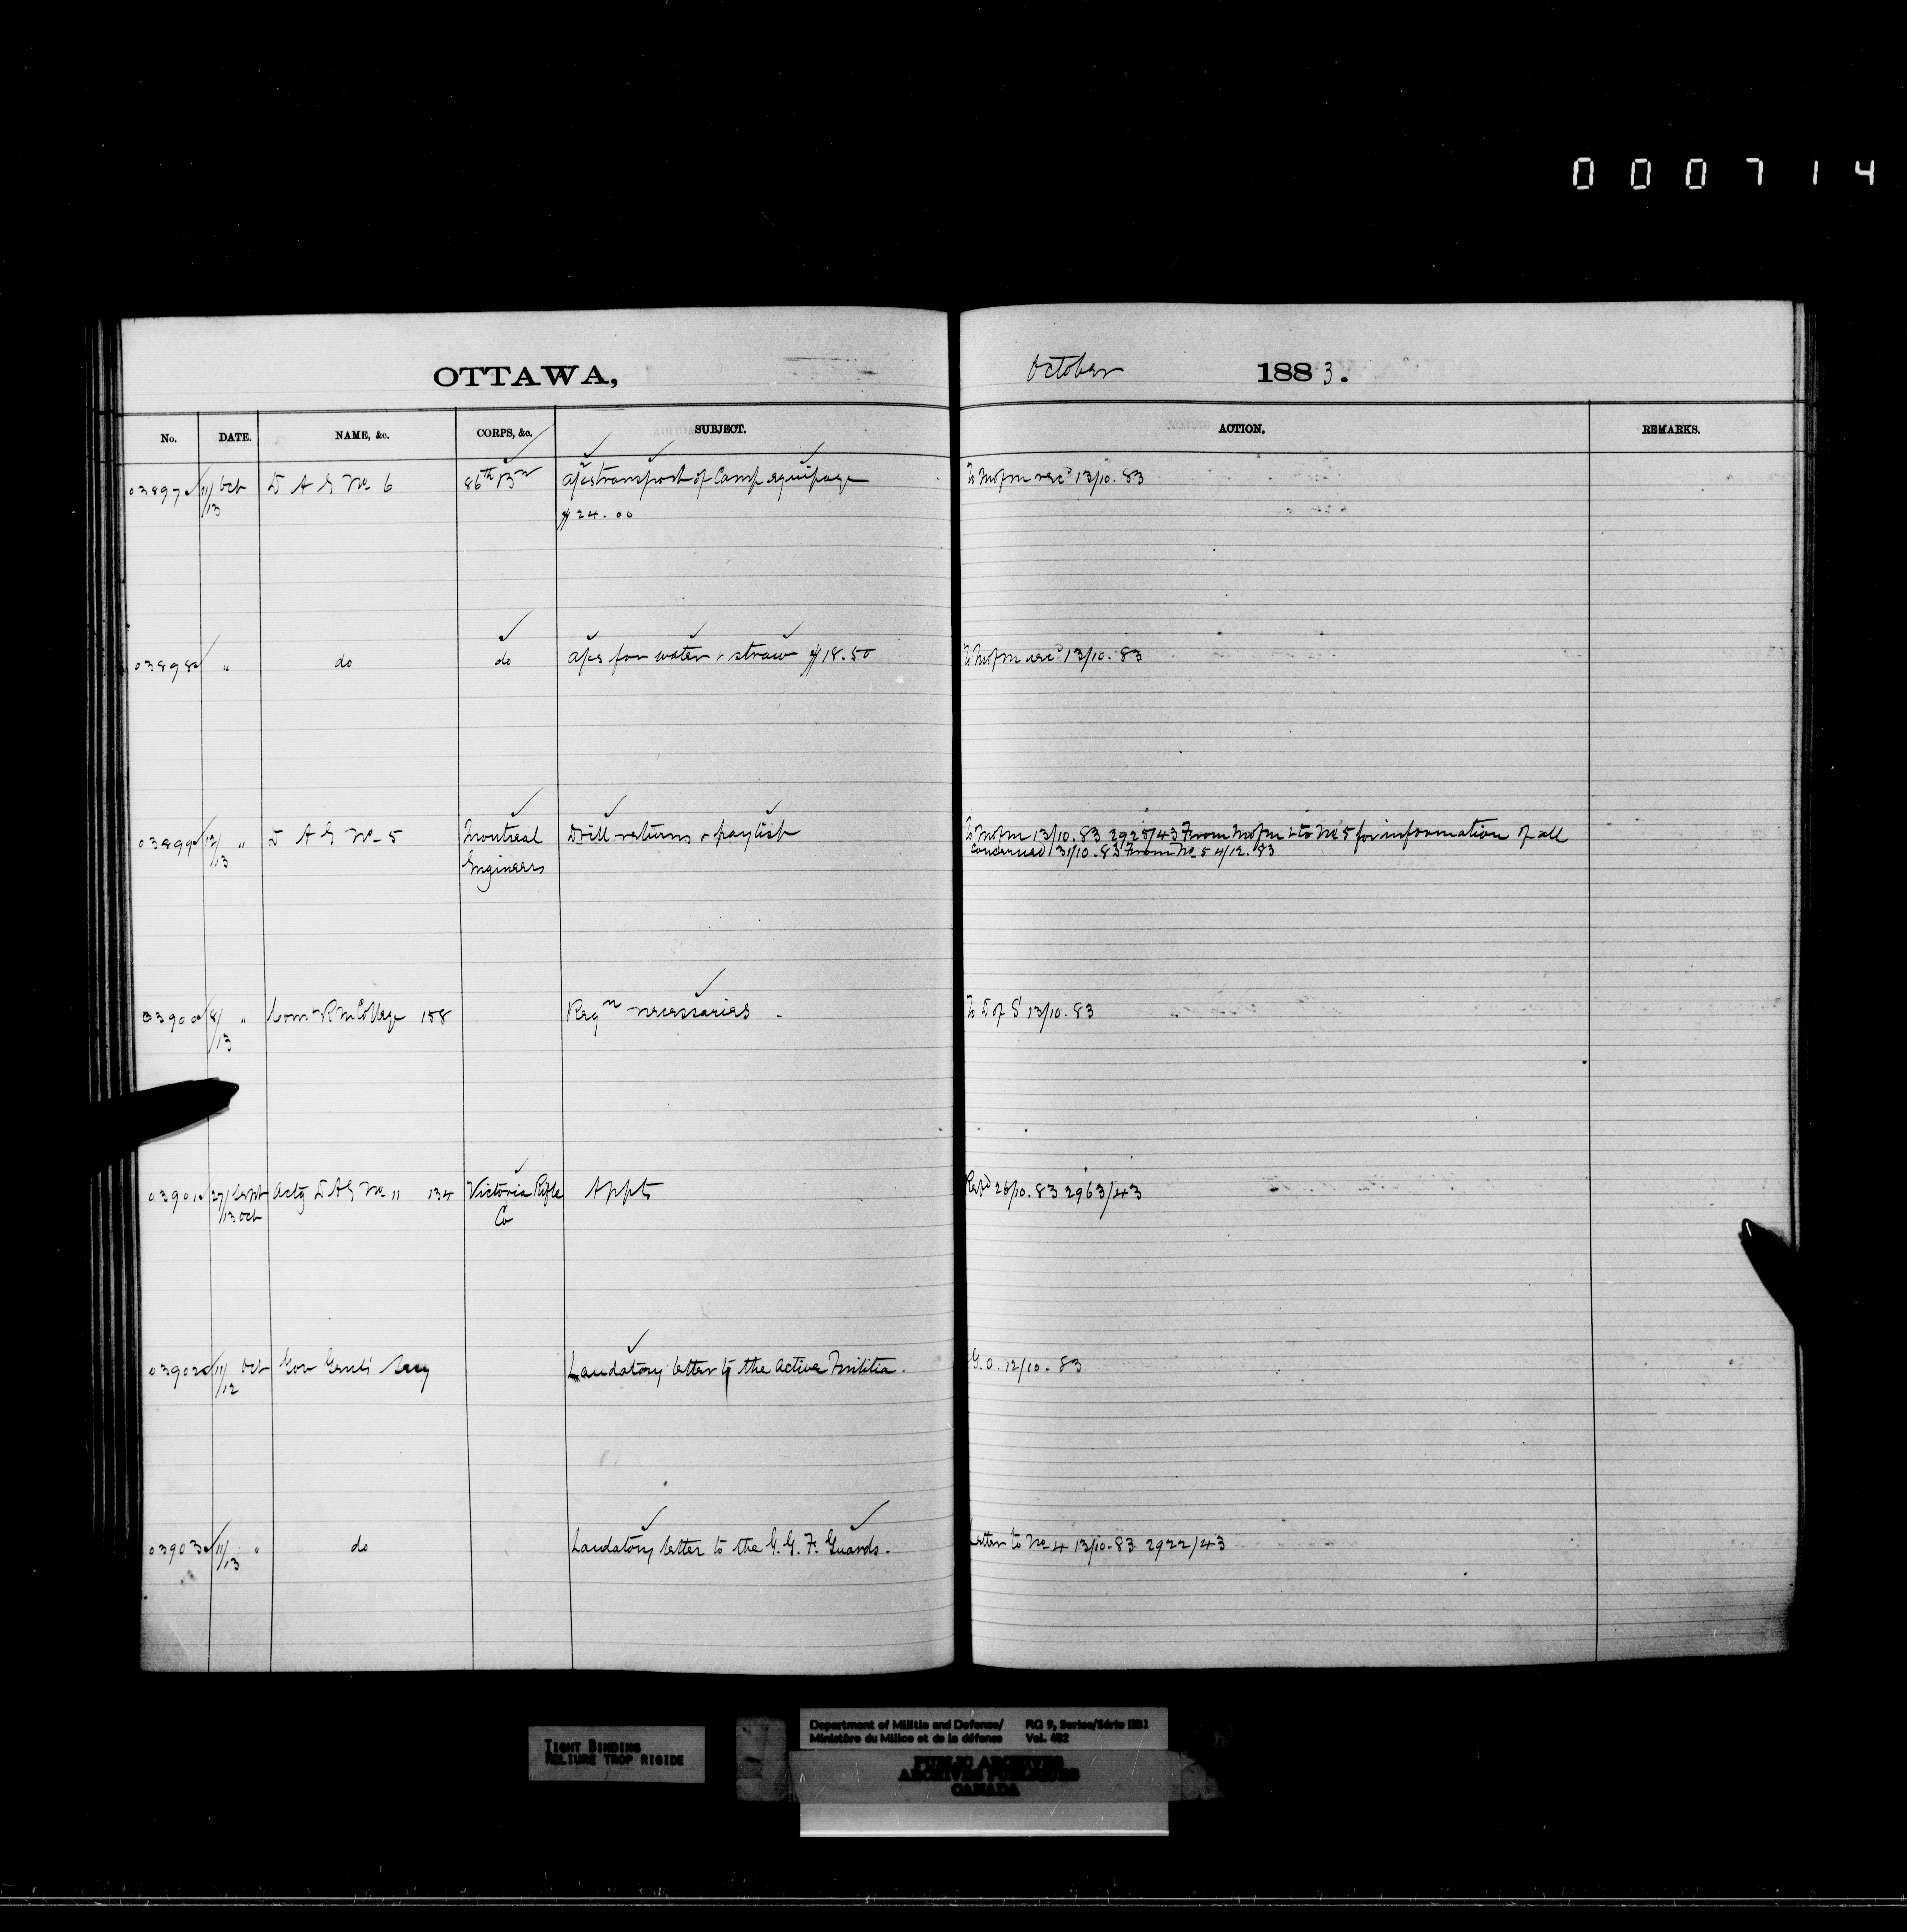 000714
OTTAWA,
October 1883.
No. DATE. NAME, &c. CORPS, &c. SUBJECT. ACTION. REMARKS.
03897 11/13 Oct D A G No 6 86th Bn a/cs transport of Camp equipage To M of M rec 13/10.83
$24.00
03898 " do do a/cs for water & straw $18.50 To M of M rec 13/10.83
03899 12/13 " D A G No 5 Montreal Drill returns & paylist To M of M 13/10.83 2925/43 From M of M & to No 5 for information of all
Engineers concerned 31/10.83 From No 5 4/12.83
03900 8/13 " Comt R M College 158 Reqn necessaries. To D of S 13/10.83
03901 27/Sept Actg D A G No 11 134 Victoria Rifle Appts 26/10.83 2963/43
13 Oct Co
03902 11/12 Oct Gov Genl's Secy Laudatory letter to the Active Militia. G.O. 12/10.83
03903 11/13 " do Laudatory letter to the G.G.F. Guards. Letter to No 4 13/10.83 2922/43
TIGHT BINDING
RELIURE TROP RIGIDE
Department of Militia and Defence/ RG 9, Series/Série IIB1
Ministère du Milice et de la défense Vol. 482
PUBLIC ARCHIVES
ARCHIVES PUBLIQUES
CANADA